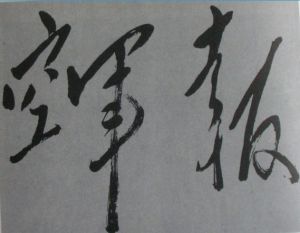 空军报